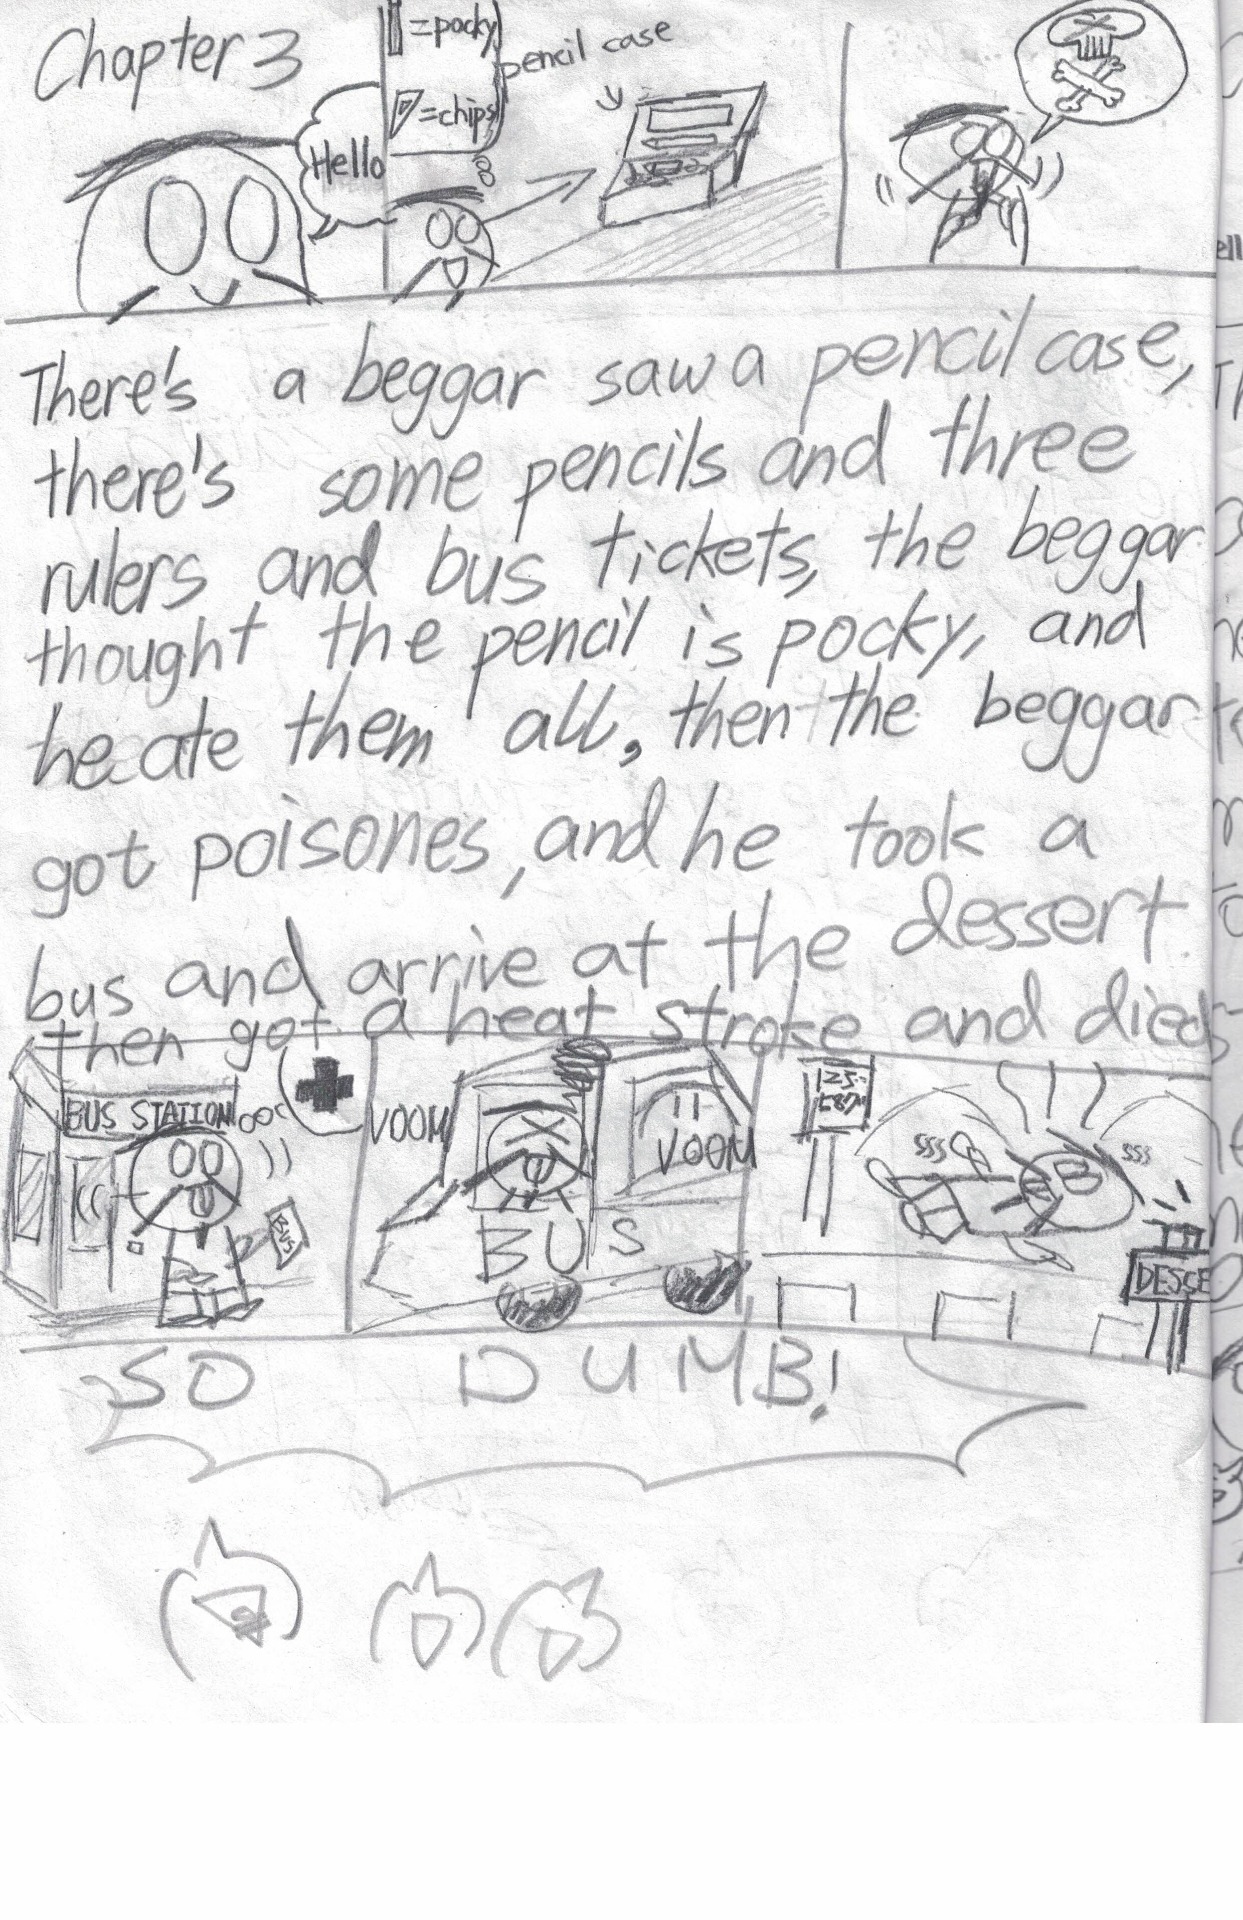 Chapter 3
Hello
=pocky
=chips
pencil case
There's a beggar saw a pencil case,
there's some pencils and three
rulers and bus tickets, the beggar
thought the pencil is pocky, and
he ate them all, then the beggar
got poisones, and he took a
bus and arrive at the dessert
then got a heat stroke and died
BUS STATION
BUS
VOOM
VOOM
BUS
SSS
SSS
DESSE
SO DUMB!